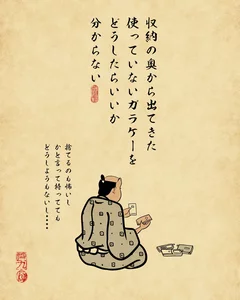 収納の奥から出てきた
使っていないガラケーを
どうしたらいいか
分からない
捨てるのも怖いし
かと言って持ってても
どうしようもないし…